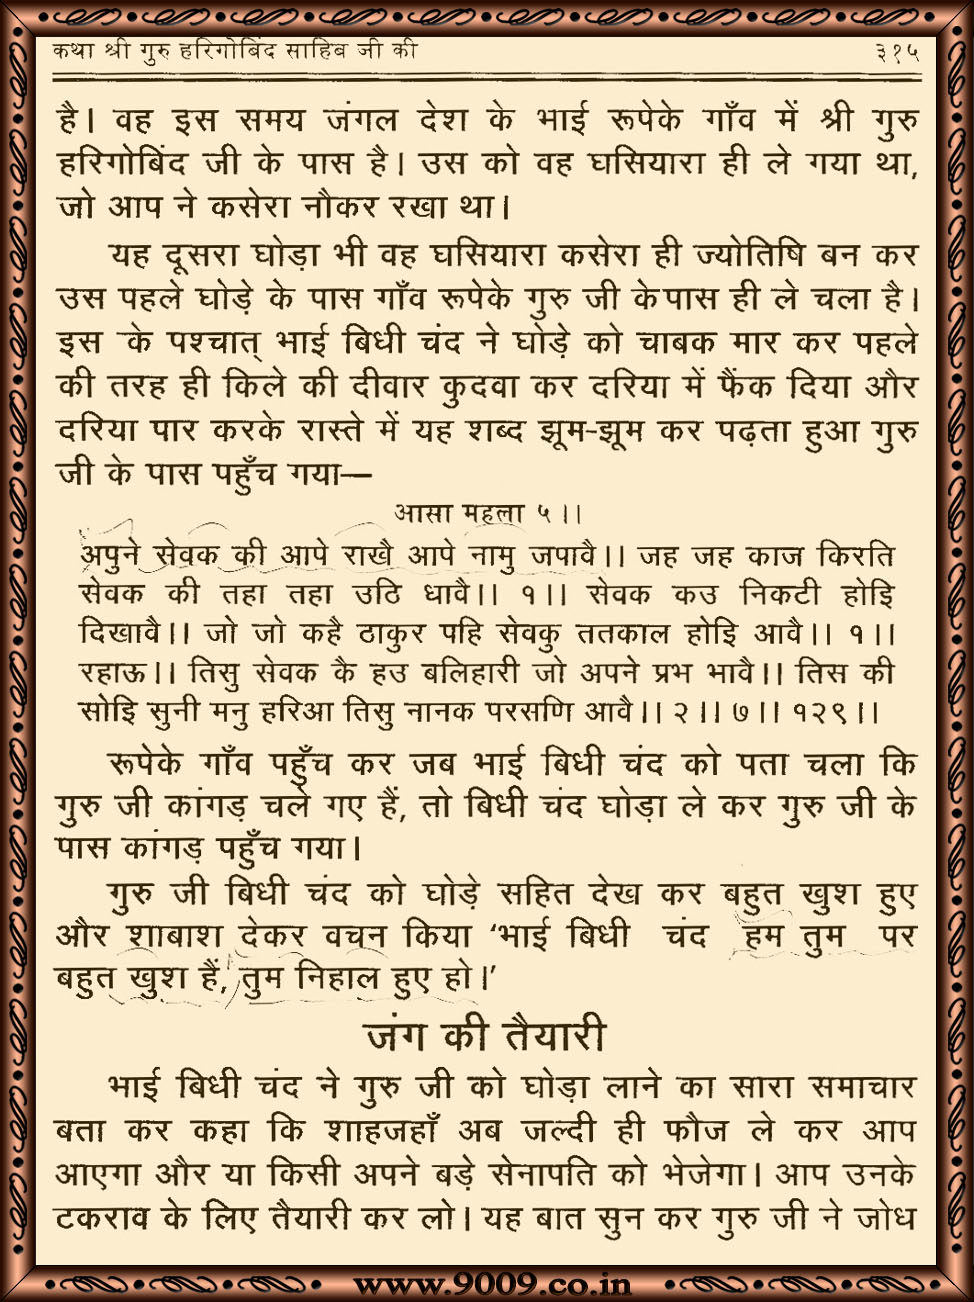 कथा श्री गुरु हरिगोबिंद साहिब जी की ३१५
है। वह इस समय जंगल देश के भाई रूपेके गाँव में श्री गुरु
हरिगोबिंद जी के पास है। उस को वह घसियारा ही ले गया था,
जो आप ने कसेरा नौकर रखा था।
यह दूसरा घोड़ा भी वह घसियारा कसेरा ही ज्योतिषि बन कर
उस पहले घोड़े के पास गाँव रूपेके गुरु जी के पास ही ले चला है।
इस के पश्चात् भाई बिधी चंद ने घोड़े को चाबक मार कर पहले
की तरह ही किले की दीवार कुदवा कर दरिया में फैंक दिया और
दरिया पार करके रास्ते में यह शब्द झूम-झूम कर पढ़ता हुआ गुरु
जी के पास पहुँच गया—
आसा महला ५।।
अपुने सेवक की आपे राखै आपे नामु जपावै।। जह जह काज किरति
सेवक की तहा तहा उठि धावै।। १।। सेवक कउ निकटी होइि
दिखावै।। जो जो कहै ठाकुर पहि सेवकु ततकाल होइि आवै।। १।।
रहाऊ।। तिसु सेवक कै हउ बलिहारी जो अपने प्रभ भावै।। तिस की
सोइि सुनी मनु हरिआ तिसु नानक परसणि आवै।। २।। ७।। १२९।।
रूपेके गाँव पहुँच कर जब भाई बिधी चंद को पता चला कि
गुरु जी कांगड़ चले गए हैं, तो बिधी चंद घोड़ा ले कर गुरु जी के
पास कांगड़ पहुँच गया।
गुरु जी बिधी चंद को घोड़े सहित देख कर बहुत खुश हुए
और शाबाश देकर वचन किया ‘भाई बिधी चंद हम तुम पर
बहुत खुश हैं, तुम निहाल हुए हो।’
जंग की तैयारी
भाई बिधी चंद ने गुरु जी को घोड़ा लाने का सारा समाचार
बता कर कहा कि शाहजहाँ अब जल्दी ही फौज ले कर आप
आएगा और या किसी अपने बड़े सेनापति को भेजेगा। आप उनके
टकराव के लिए तैयारी कर लो। यह बात सुन कर गुरु जी ने जोध
www.9009.co.in